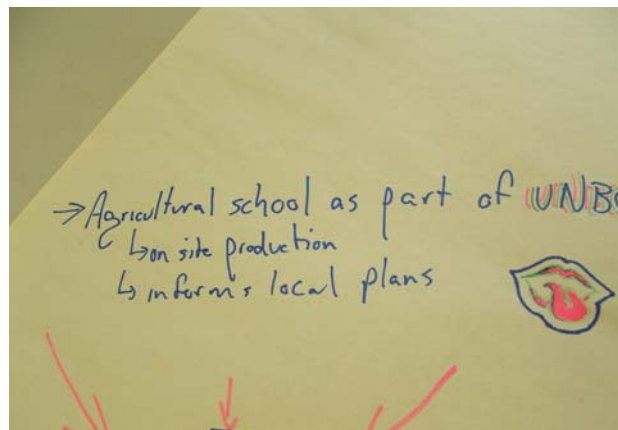 → Agricultural school as part of UNBC
↳ on site production
↳ informs local plans